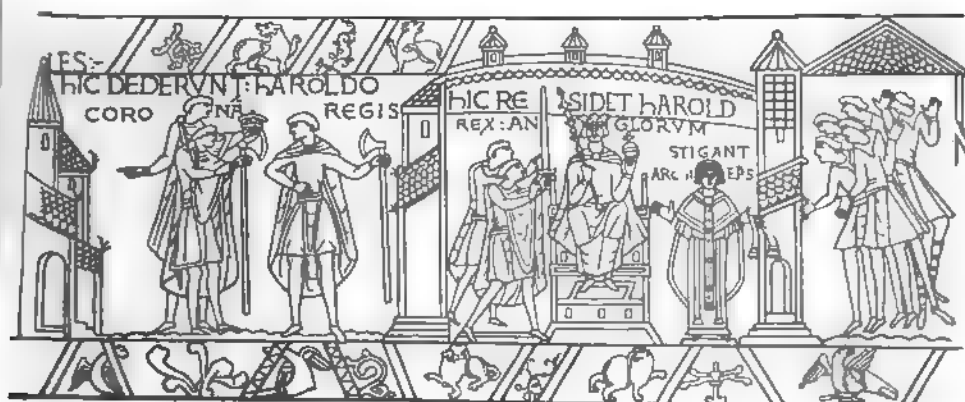 LES:-
hIC DEDERVNT: hAROLDO
CORONĀ REGIS
hIC RESIDET hAROLD
REX: ANGLORVM
STIGANT
ARCHIEPS